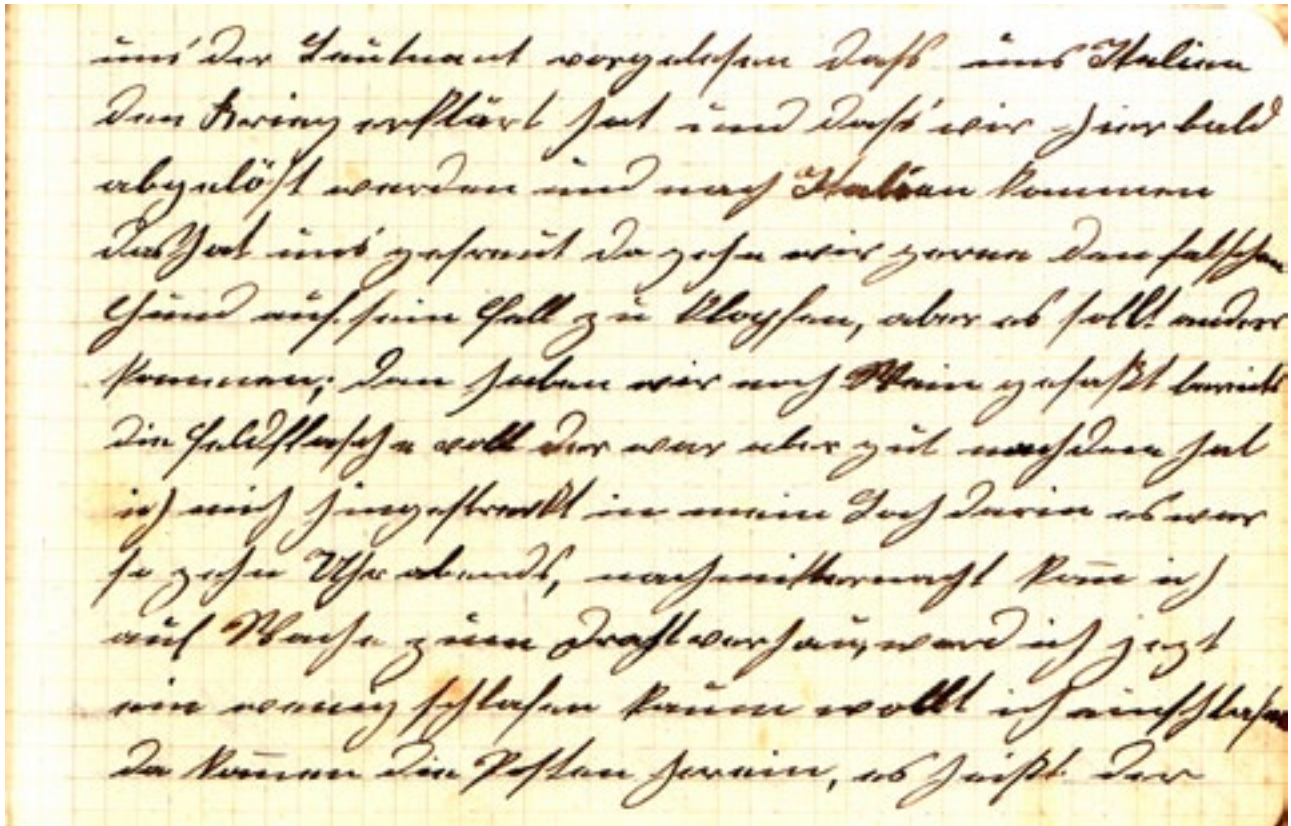 uns der Leutnant vorgelesen dass uns Italien
den Krieg erklärt hat und dass wir hier bald
abgelöst werden und nach Italien kommen
das hat uns gefreut da gehn wir gerne den falschen
Hund auf sein Fell zu klopfen, aber es sollt anders
kommen; dan haben wir noch Wein gefaßt bereits
die Feldflasche voll der war aber gut nachdem hat
ich mich hingestreckt in mein Loch darin es war
so zehn Uhr abends, nachmitternacht kom̅ ich
auf Wache zum Drahtverhau, werd ich jezt
ein wenig schlafen kaum wollt ich einschlafen
da kom̅en die Posten herein, es heißt der